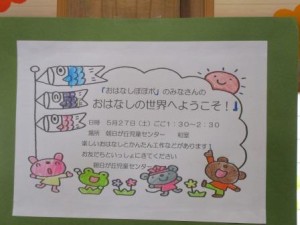 「おはなしぽぽポ」のみなさんの
おはなしの世界へようこそ！
日時 5月27日（土）ごご1：30～2：30
場所 朝日が丘児童センター 和室
楽しいおはなしとかんたん工作などがあります！
おともだちといっしょにきてください
朝日が丘児童センター